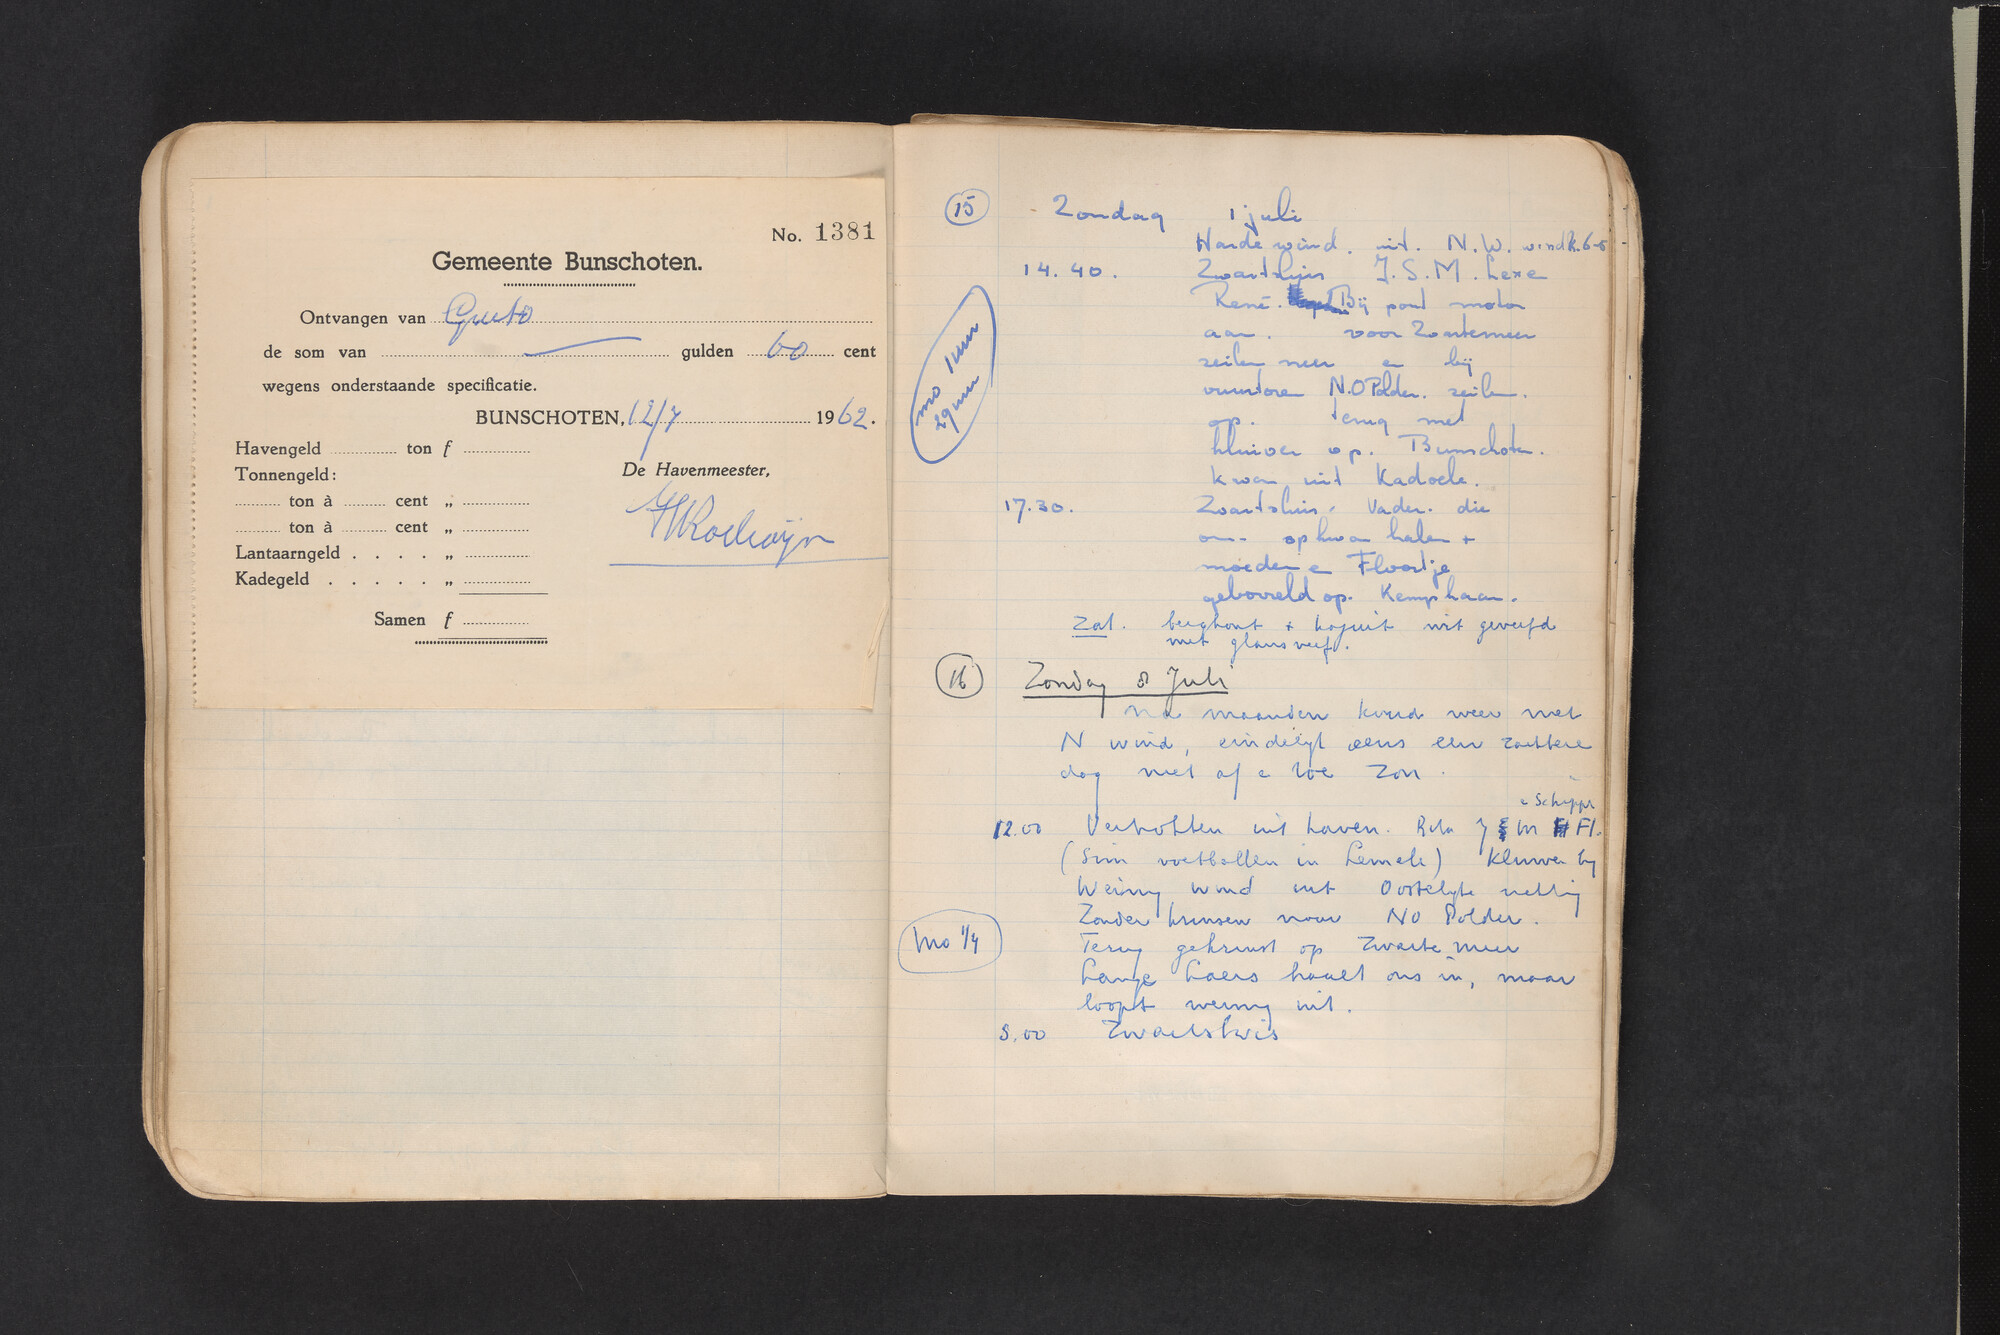 No. 1381
Gemeente Bunschoten.
Ontvangen van Gruto
de som van gulden 60 cent
wegens onderstaande specificatie.
BUNSCHOTEN, 12/7 1962.
Havengeld ton f
Tonnengeld:
ton à cent „
ton à cent „
Lantaarngeld . . . . „
Kadegeld . . . . . „
Samen f
De Havenmeester,
15 Zondag 1 juli
Harde wind. uit. N.W. windk. 6-8
14.40. Zwartsluis J.S.M. Lexe
René. Bij pont motor
aan. voor Zwartemeer
zeilen neer en bij
vuurtoren N.O Polder. zeilen.
op. terug met
kluiver op. Bunschoten.
kwam uit Kadoele.
mo 1 uur
29 uur
17.30. Zwartsluis. Vader. die
ons ophwam halen +
moeder en Floortje
geborreld op. Kemphaan.
Zat. berghout + kajuit wit geverfd
met glansverf.
16 Zondag 8 Juli
Na maanden koud weer met
N wind, eindelijk eens een zachtere
dag met af e toe zon.
e Schipper
12.00 Vertrokken uit haven. Rita J M Fl.
(Sim voetballen in Lemele) Kluiver bij
Weinig wind uit Oostelijke richting
Zonder kruisen naar NO Polder.
mo 1/4
Terug gekruist op Zwarte meer
Lange Laers haalt ons in, maar
loopt weinig uit.
5.00 Zwartsluis